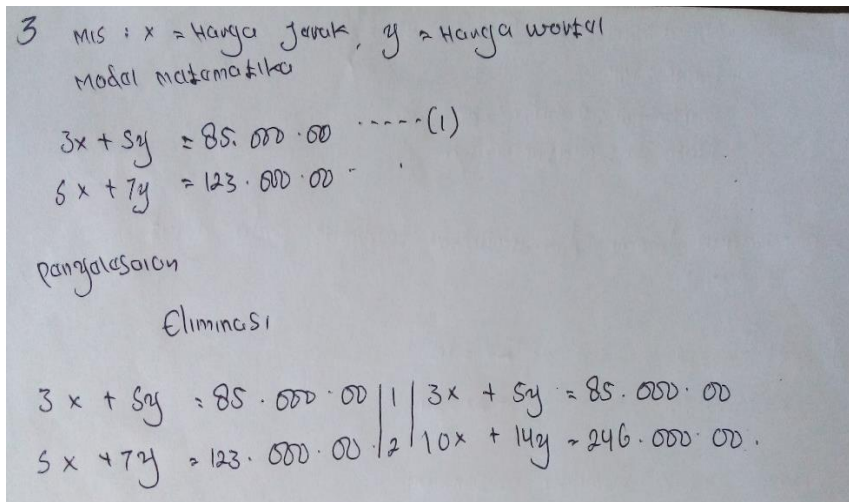 3 Mis : x = Harga Jeruk, y = Harga wortel
Model matematika
3x + 5y = 85.000.00 ......(1)
5x + 7y = 123.000.00 - .
Penyelesaian
Eliminasi
3x + 5y = 85.000.00 | 1 | 3x + 5y = 85.000.00
5x + 7y = 123.000.00 | 2 | 10x + 14y = 246.000.00.